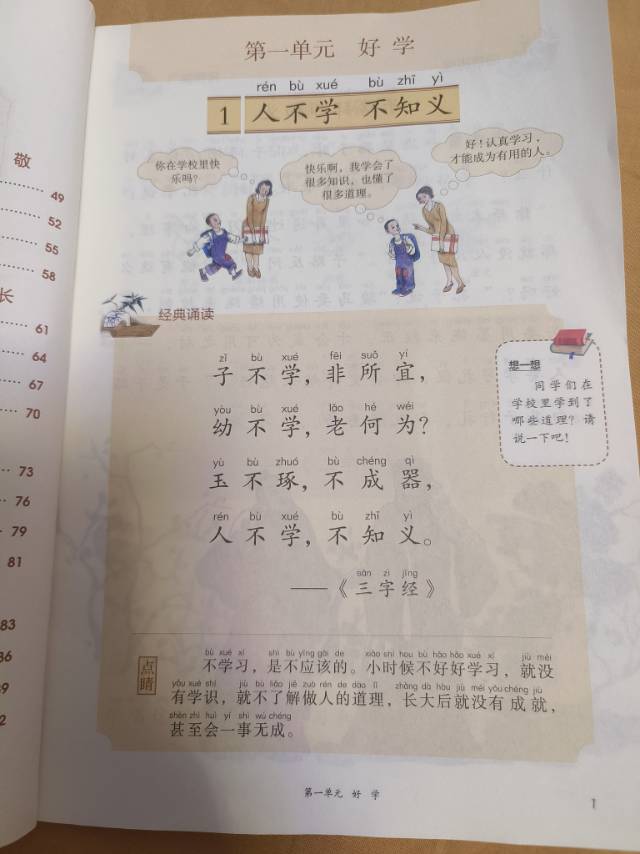 敬
49
52
55
58
长
61
64
67
70
73
76
79
81
83
第一单元 好学
rén bù xué bù zhī yì
1 人不学 不知义
你在学校里快
乐吗?
快乐啊,我学会了
很多知识,也懂了
很多道理。
好!认真学习,
才能成为有用的人。
经典诵读
zǐ bù xué fēi suǒ yí
子不学,非所宜,
yòu bù xué lǎo hé wéi
幼不学,老何为?
yù bù zhuó bù chéng qì
玉不琢,不成器,
rén bù xué bù zhī yì
人不学,不知义。
sān zì jīng
——《三字经》
想一想
同学们在
学校里学到了
哪些道理?请
说一下吧!
点睛
bù xué xí shì bù yīng gāi de xiǎo shí hou bù hǎo hǎo xué xí jiù méi
不学习,是不应该的。小时候不好好学习,就没
yǒu xué shí jiù bù liǎo jiě zuò rén de dào lǐ zhǎng dà hòu jiù méi yǒu chéng jiù
有学识,就不了解做人的道理,长大后就没有成就,
shèn zhì huì yí shì wú chéng
甚至会一事无成。
第一单元 好学
1